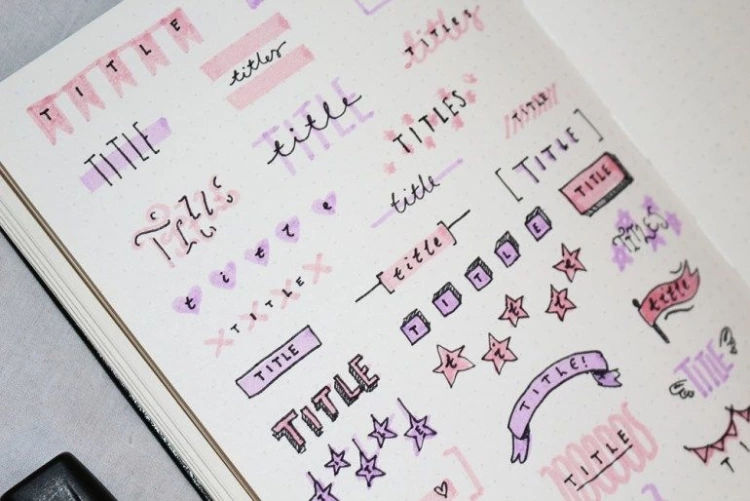 TITLE
titles
Titles
titles
TITLE
title
TITLE
TITLES
TITLE
TITLE
title
TITLE
TITLE
title
TITLE
title
TITLES
TITLE
TITLE
title
TITLE
title
TITLE
TITLE!
TITLE
TITLE
TITLE